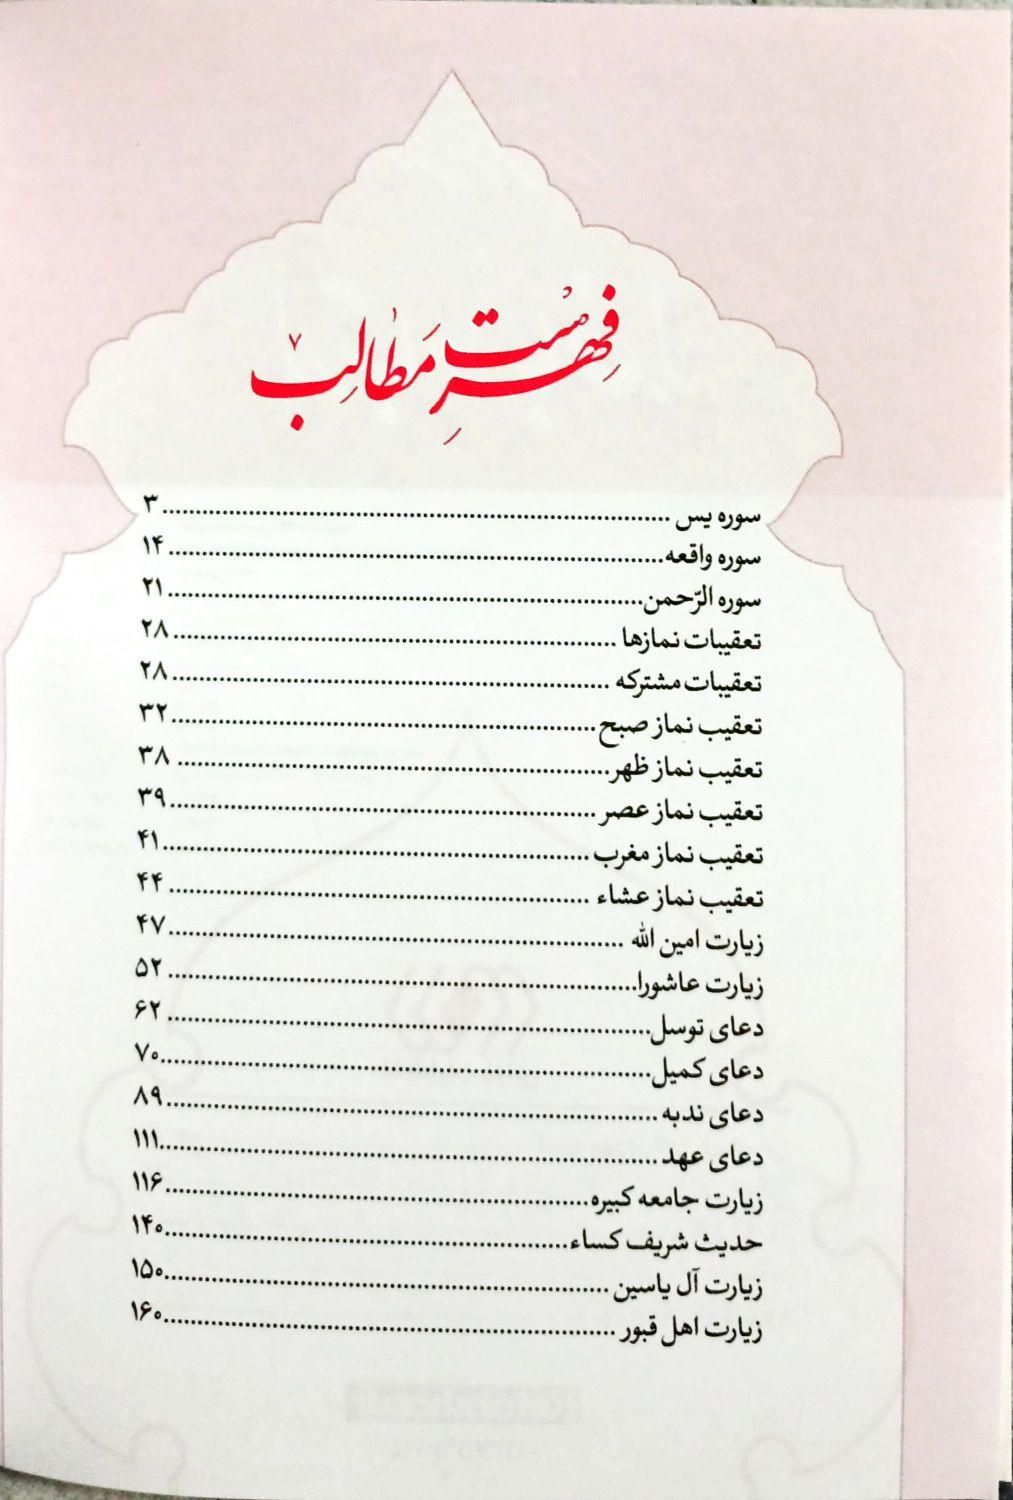 فهرست مطالب
سوره یس ........ ۳
سوره واقعه ........ ۱۴
سوره الرّحمن ........ ۲۱
تعقیبات نمازها ........ ۲۸
تعقیبات مشترکه ........ ۲۸
تعقیب نماز صبح ........ ۳۲
تعقیب نماز ظهر ........ ۳۸
تعقیب نماز عصر ........ ۳۹
تعقیب نماز مغرب ........ ۴۱
تعقیب نماز عشاء ........ ۴۴
زیارت امین الله ........ ۴۷
زیارت عاشورا ........ ۵۲
دعای توسل ........ ۶۲
دعای کمیل ........ ۷۰
دعای ندبه ........ ۸۹
دعای عهد ........ ۱۱۱
زیارت جامعه کبیره ........ ۱۱۶
حدیث شریف کساء ........ ۱۴۰
زیارت آل یاسین ........ ۱۵۰
زیارت اهل قبور ........ ۱۶۰